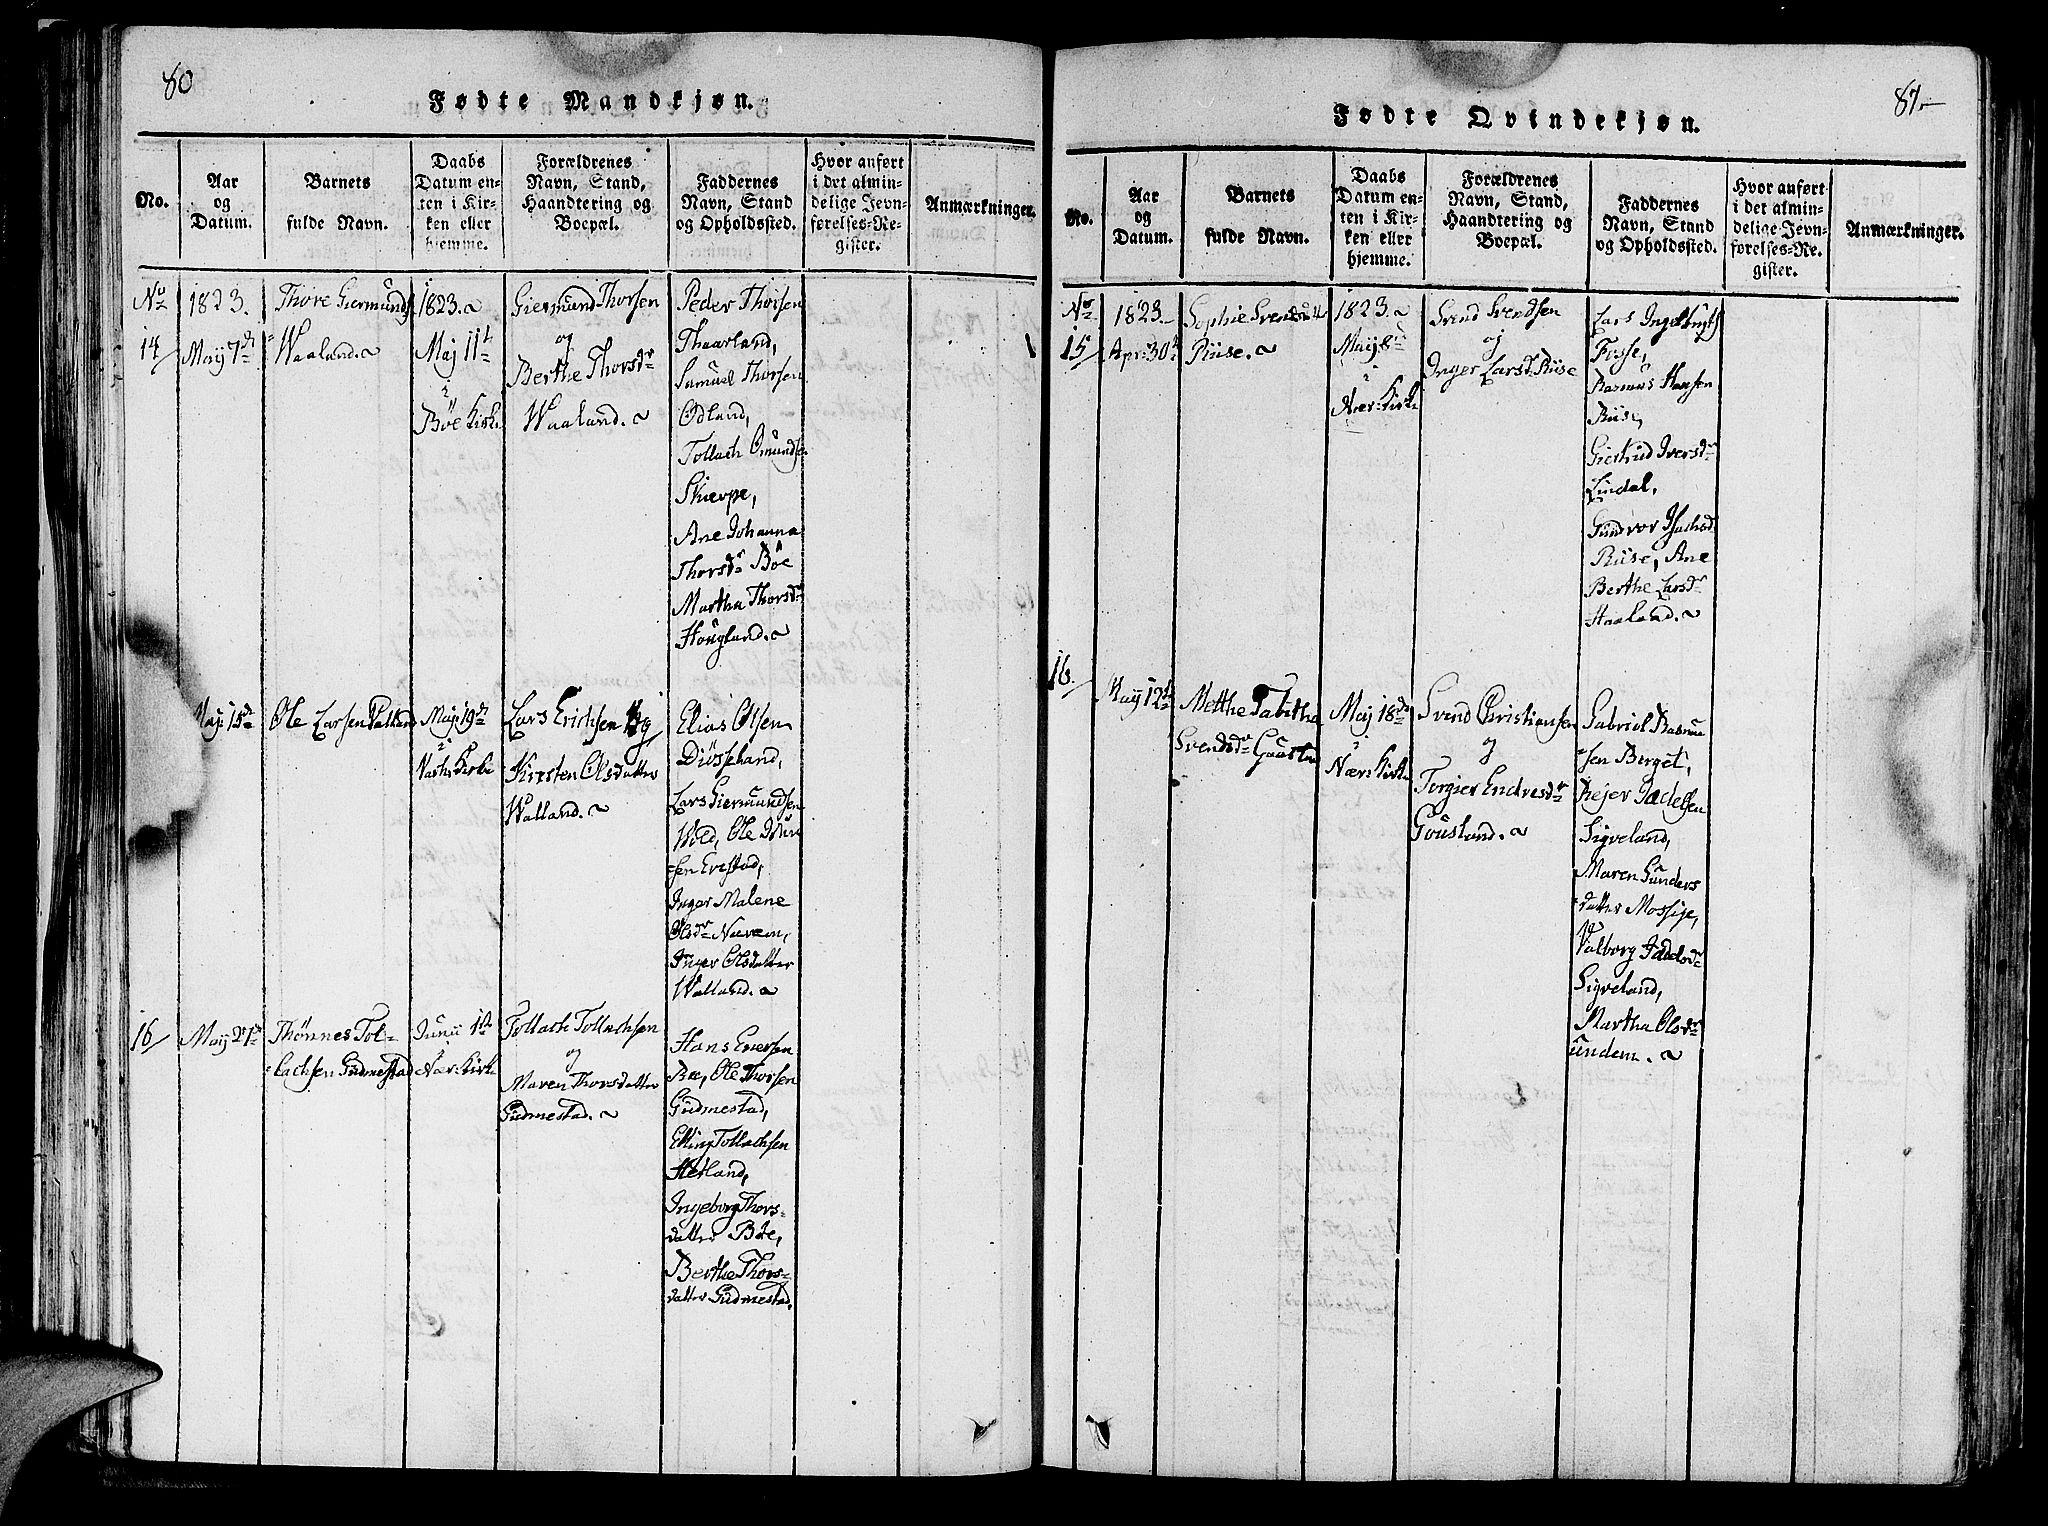 80
Fødte Mandkjøn.
No.
Aar
og
Datum.
Barnets
fulde Navn.
Daabs
Datum en-
ten i Kir-
ken eller
hjemme.
Forældrenes
Navn, Stand,
Haandtering og
Boepæl.
Faddernes
Navn, Stand
og Opholdssted.
Hvor anført
i det almin-
delige Jevn-
førelses-Re-
gister.
Anmærkninger.
No
14
1823.
May 7de
Thore Giermunds
Waaland.
1823.
Maj 11te
i
Böe Kirke
Giermund Thorsen
og
Berthe Thorsdr
Waaland.
Peder Thorsen
Thaarland,
Samuel Thorsen
Ødland,
Tollach Omundse
Skierpe,
Ane Johanna
Thorsdr Böe
Martha Thorsdr
Hougland.
Maji 15de
Ole Larsen
Maji 19de
i
Kirke
Lars Erichsen og
Kirsten Olsdatter
Walland.
Elias Olsen
Diösseland,
Lars Giermundsen
Wold, Ole
sen Evestad,
Inger Malene
Olsdr Nærem,
Inger Olsdatter
Walland.
16
May 27de
Thönnes Tol-
lachsen Gudmestad
Junii 1ste
Nær: Kirke
Tollach Tollachsen
og
Maren Thorsdatter
Gudmestad.
Hans Eversen
Bøe, Ole Thorsen
Gudmestad,
Elling Tollachsen
Hetland,
Ingeborg Thors-
datter Böe,
Berthe Thors-
datter Gudmestad.
81
Fødte Qvindekjøn.
No.
Aar
og
Datum.
Barnets
fulde Navn.
Daabs
Datum en-
ten i Kir-
ken eller
hjemme.
Forældrenes
Navn, Stand,
Haandtering og
Boepæl.
Faddernes
Navn, Stand
og Opholdssted.
Hvor anført
i det almin-
delige Jevn-
førelses-Re-
gister.
Anmærkninger.
No
15
1823.
Apr: 30te
Sophie Svendsdr
Riise.
1823.
Maij 8de
i
Nær: Kirke
Svend Svendsen
og
Inger Larsdr Riise
Lars Ingelbrigts
Fosse,
Rasmus Hansen
Riise,
Giertrud Iversdr
Lindal,
Gundvor Isachsd
Riise, Ane
Berthe Larsdr
Haaland.
16.
Maij 12te
Metthe Tabitha
Svendsdr
Maj 18de
i
Nær: Kirke
Svend Christiansen
og
Torgier Endresdr
Gousland.
Gabriel Rasmu
sen Berget,
Rejer Jædelsen
Sigveland,
Maren Gunders
datter Mossige,
Valborg Jædelsdr
Sigveland,
Martha Olsdr
undem.